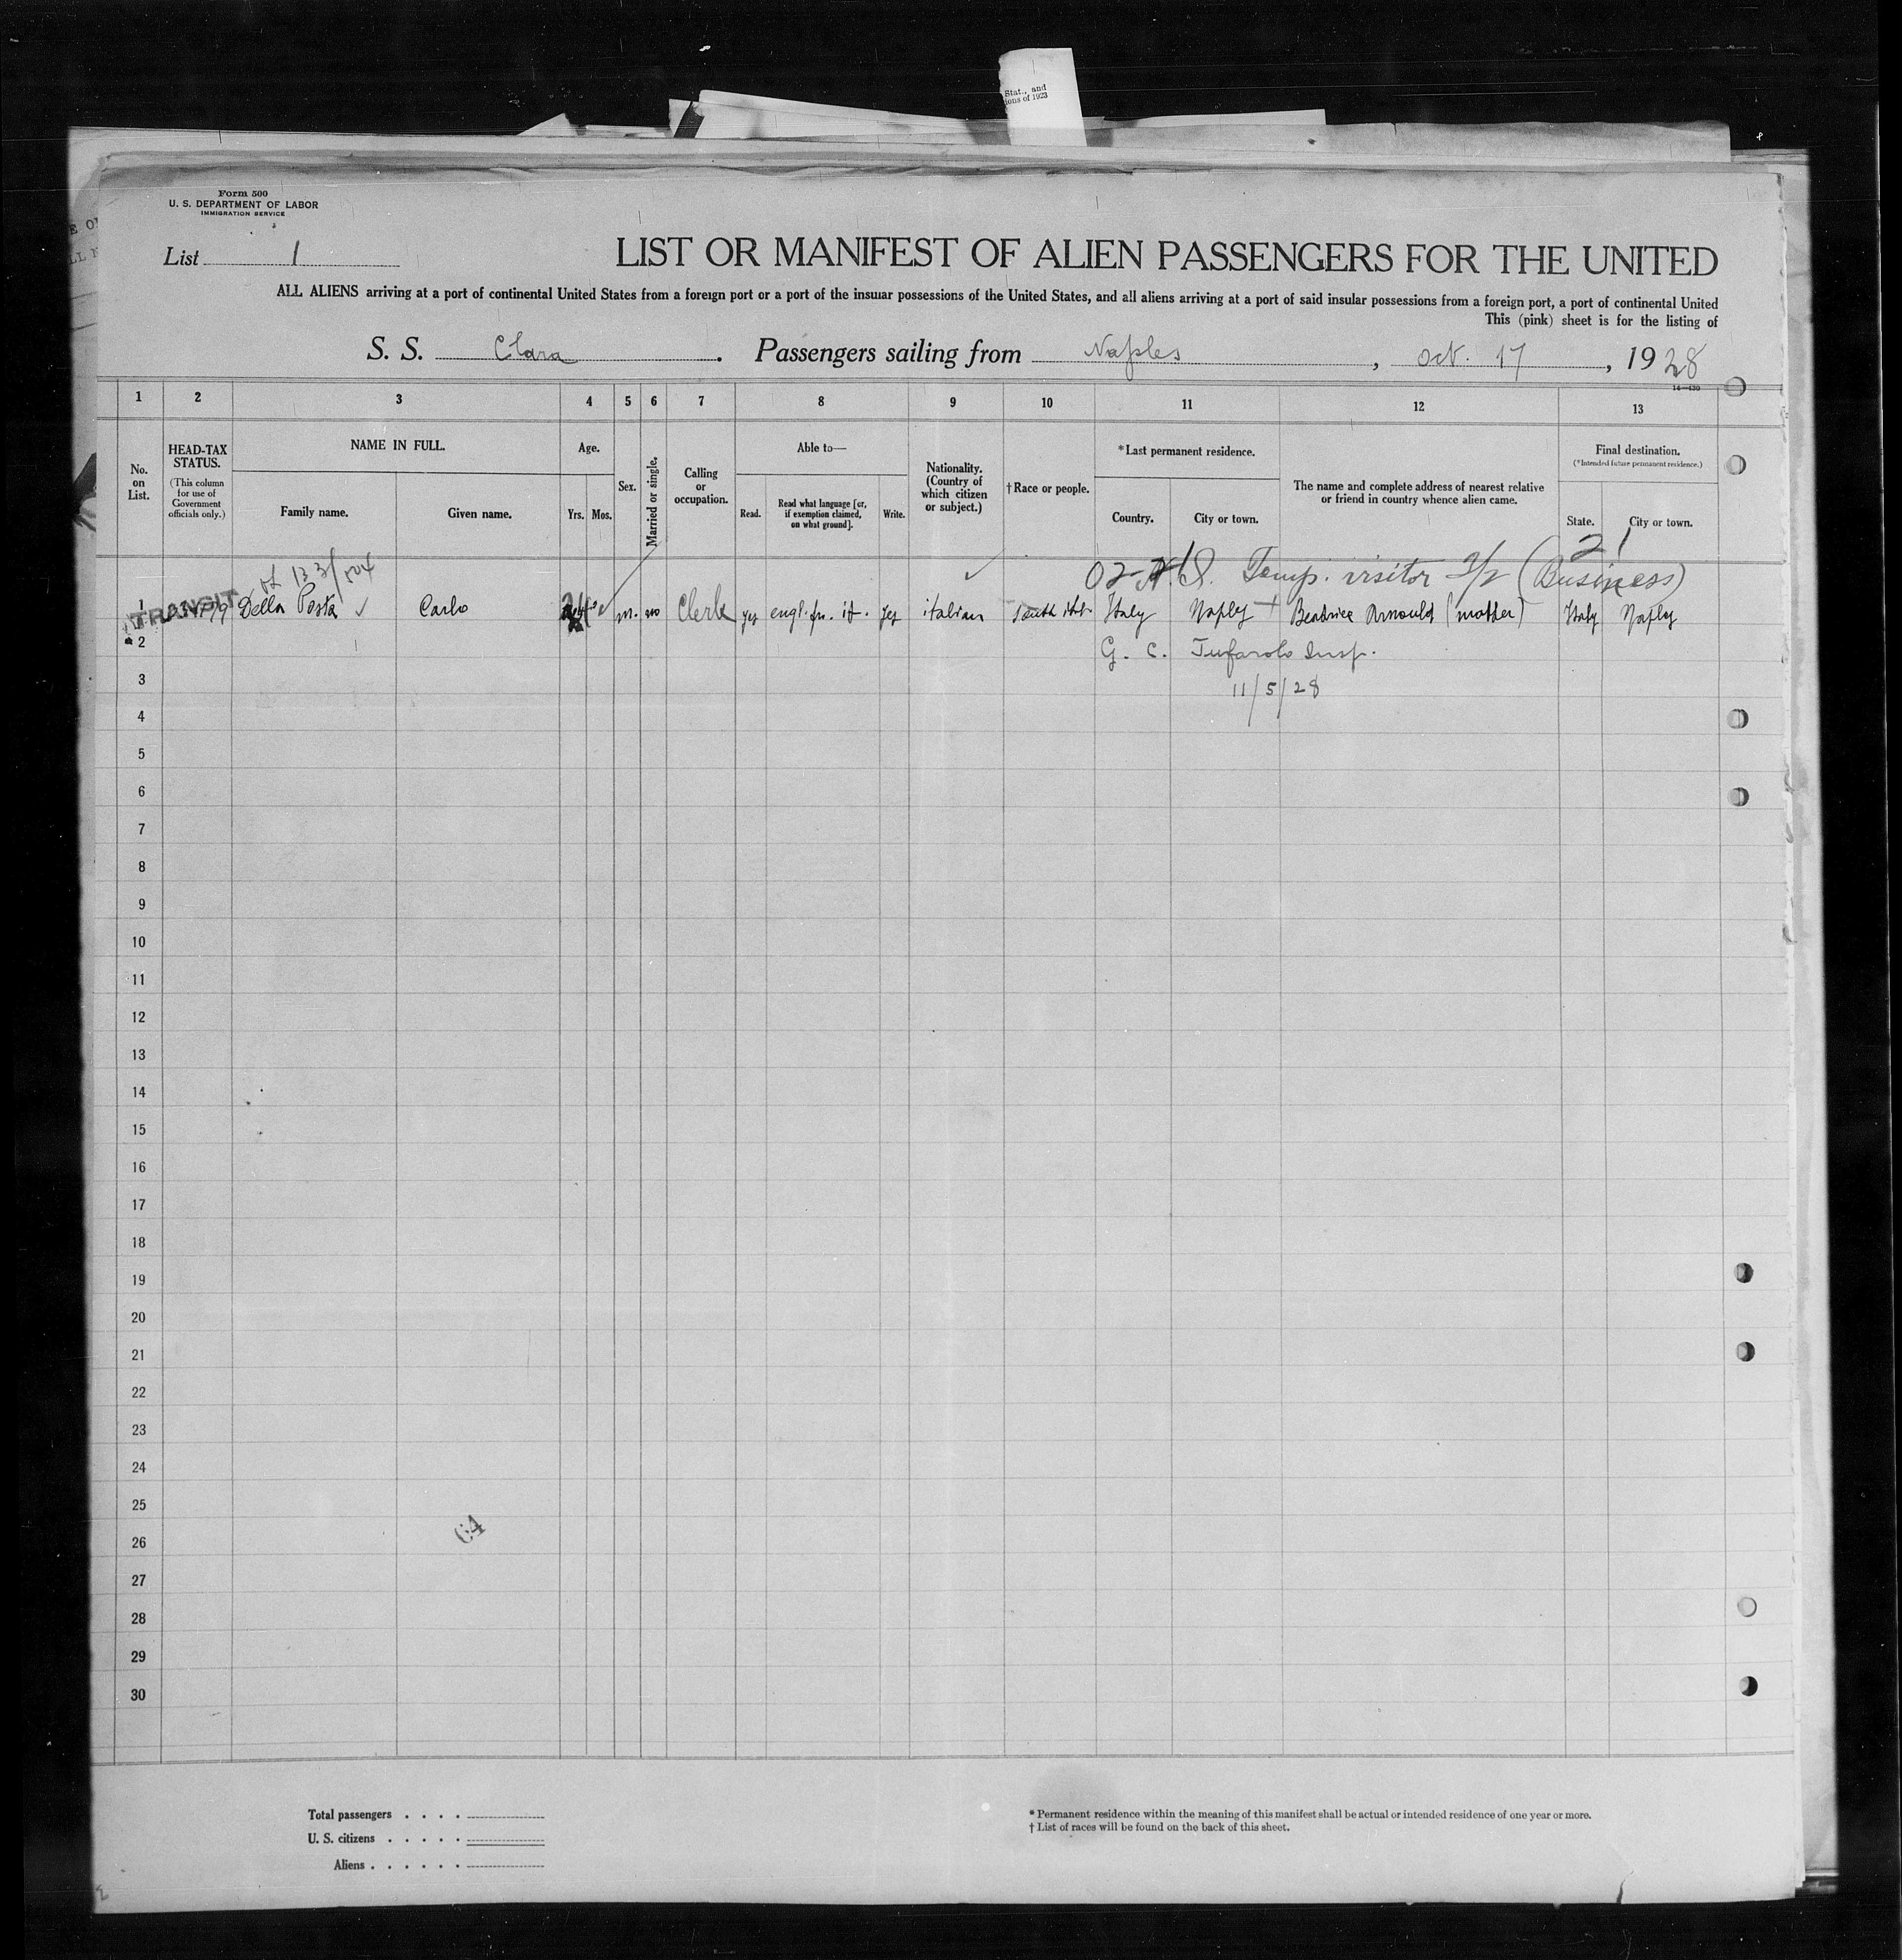 Stat., and
ions of 1923
Form 500
U. S. DEPARTMENT OF LABOR
IMMIGRATION SERVICE
List 1
LIST OR MANIFEST OF ALIEN PASSENGERS FOR THE UNITED
ALL ALIENS arriving at a port of continental United States from a foreign port or a port of the insular possessions of the United States, and all aliens arriving at a port of said insular possessions from a foreign port, a port of continental United
This (pink) sheet is for the listing of
S. S. Clara . Passengers sailing from Naples , oct. 17 , 1928
1 2 3 4 5 6 7 8 9 10 11 12 13
No. on List.
HEAD-TAX STATUS.
(This column for use of Government officials only.)
NAME IN FULL.
Family name. Given name.
Age.
Yrs. Mos.
Sex.
Married or single.
Calling or occupation.
Able to—
Read. Read what language [or, if exemption claimed, on what ground]. Write.
Nationality. (Country of which citizen or subject.)
†Race or people.
*Last permanent residence.
Country. City or town.
The name and complete address of nearest relative or friend in country whence alien came.
Final destination.
(*Intended future permanent residence.)
State. City or town.
21
Temp. visitor 3/2 (Business)
TRANSIT
1 Della Posta Carlo m. no Clerk yes engl. fr. it. yes italian South ital. Italy Naples Beatrice Arnould (mother) Italy Naples
2 G. C. Tufarolo Insp.
3 11/5/28
4
5
6
7
8
9
10
11
12
13
14
15
16
17
18
19
20
21
22
23
24
25
26
64
27
28
29
30
Total passengers . . . .
U. S. citizens . . . . .
Aliens . . . . . .
* Permanent residence within the meaning of this manifest shall be actual or intended residence of one year or more.
† List of races will be found on the back of this sheet.